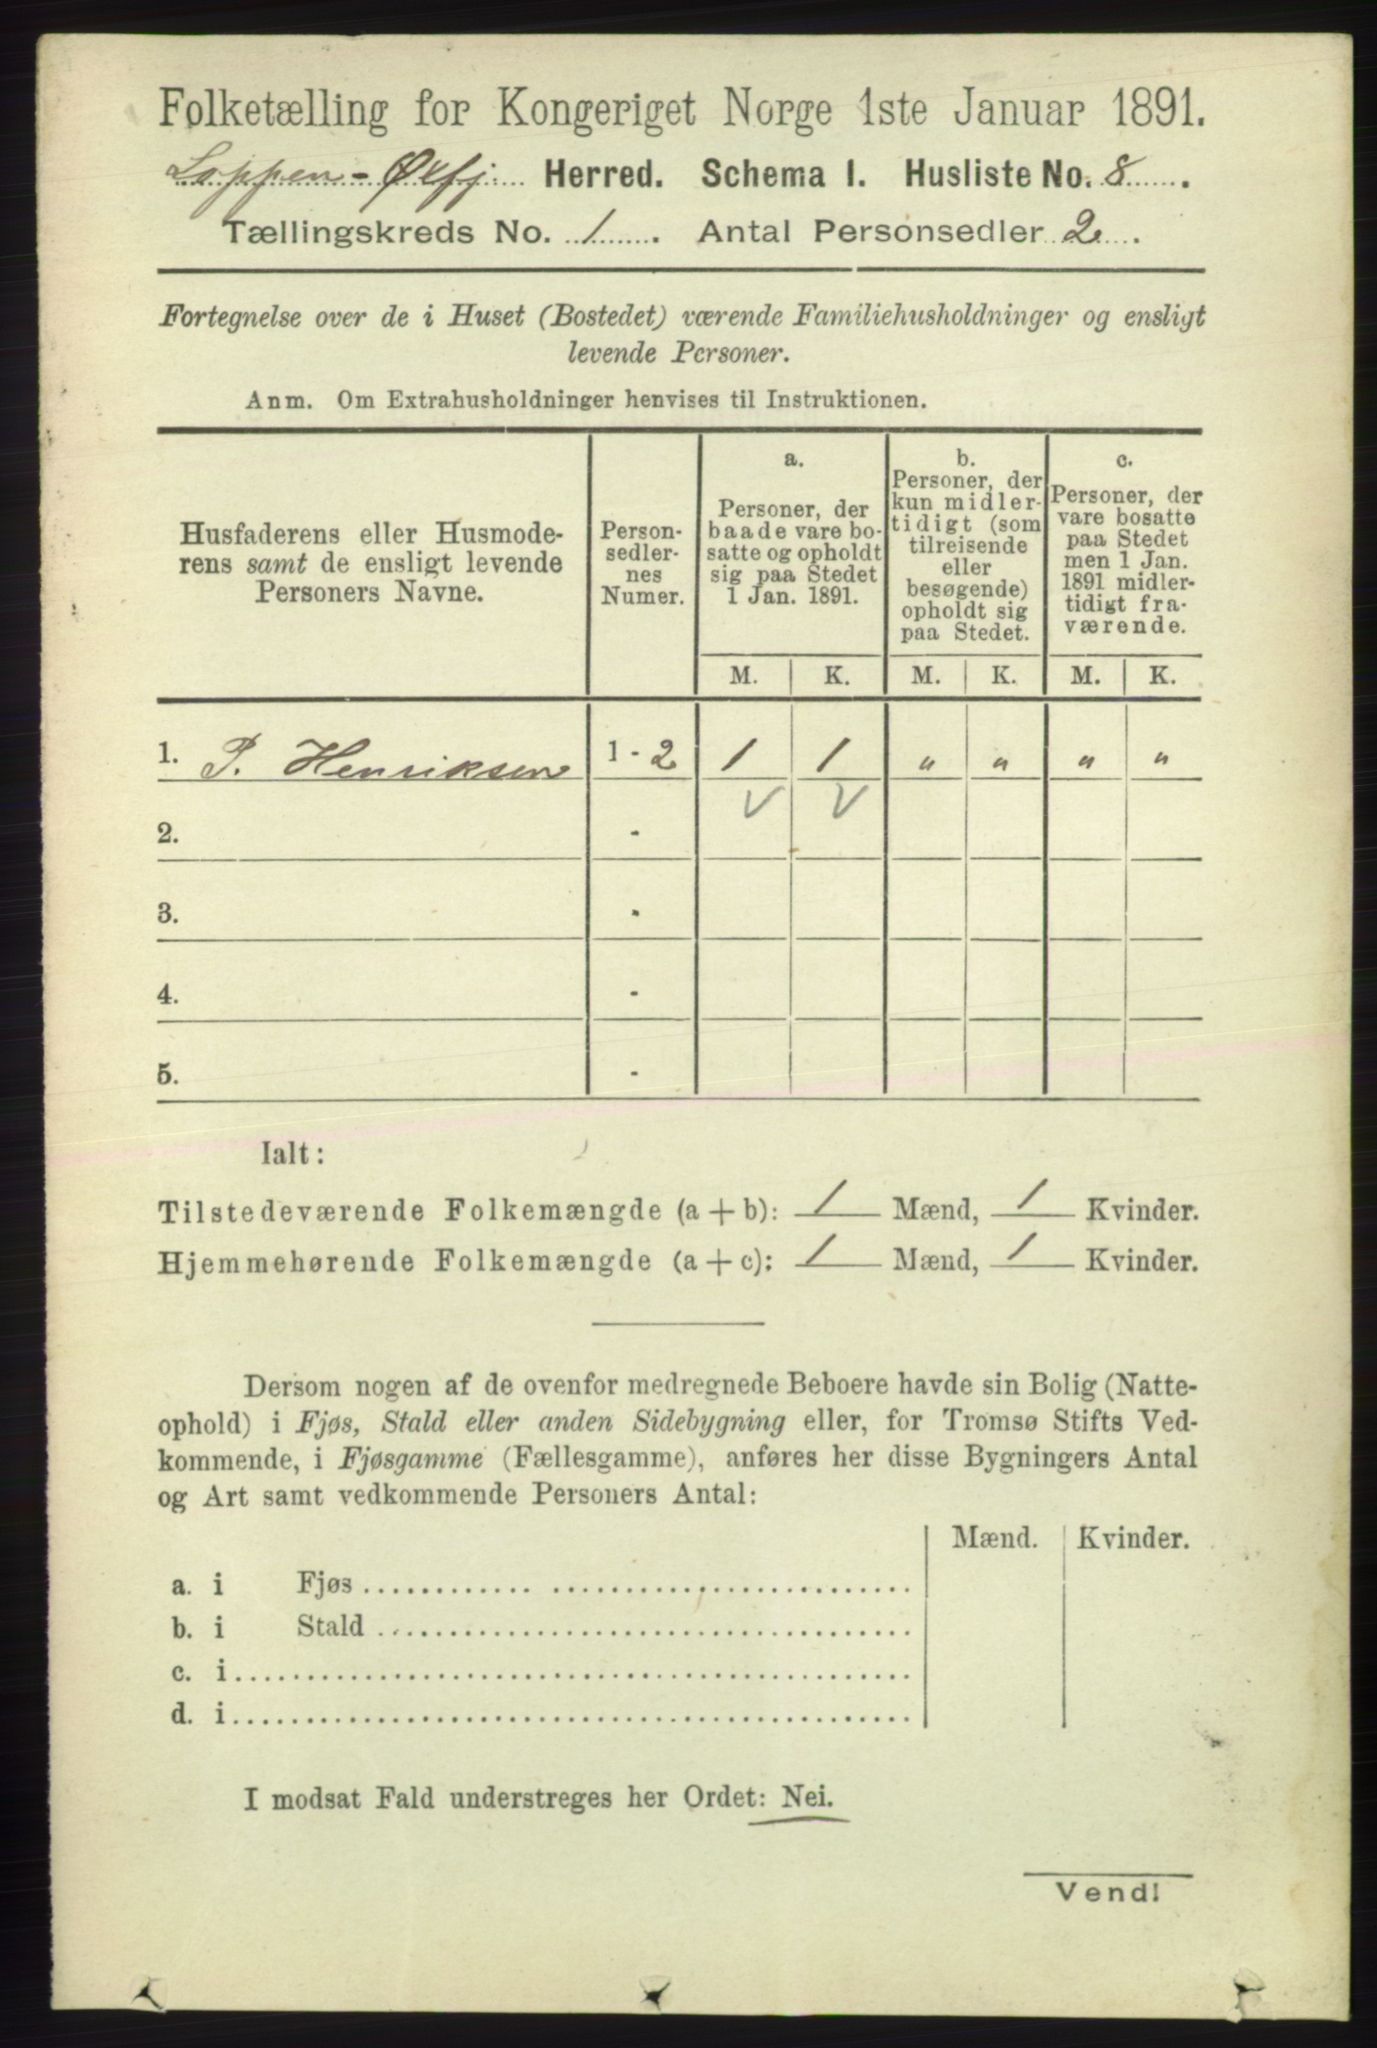 Folketælling for Kongeriget Norge 1ste Januar 1891.
Loppen - Øxfj Herred. Schema I. Husliste No. 8.
Tællingskreds No. 1. Antal Personsedler 2.
Fortegnelse over de i Huset (Bostedet) værende Familiehusholdninger og ensligt
levende Personer.
Anm. Om Extrahusholdninger henvises til Instruktionen.
Husfaderens eller Husmode-
rens samt de ensligt levende
Personers Navne.
Person-
sedler-
nes
Numer.
a.
Personer, der
baade vare bo-
satte og opholdt
sig paa Stedet
1 Jan. 1891.
b.
Personer, der
kun midler-
tidigt (som
tilreisende
eller
besøgende)
opholdt sig
paa Stedet.
c.
Personer, der
vare bosatte
paa Stedet
men 1 Jan.
1891 midler-
tidigt fra-
værende.
M. K. M. K. M. K.
1. P. Henriksen 1 - 2 1 1 " " " "
2. - V V
3. -
4. -
5. -
Ialt:
Tilstedeværende Folkemængde (a + b): 1 Mænd, 1 Kvinder.
Hjemmehørende Folkemængde (a + c): 1 Mænd, 1 Kvinder.
Dersom nogen af de ovenfor medregnede Beboere havde sin Bolig (Natte-
ophold) i Fjøs, Stald eller anden Sidebygning eller, for Tromsø Stifts Ved-
kommende, i Fjøsgamme (Fællesgamme), anføres her disse Bygningers Antal
og Art samt vedkommende Personers Antal:
Mænd. Kvinder.
a. i Fjøs
b. i Stald
c. i
d. i
I modsat Fald understreges her Ordet: Nei.
Vend!